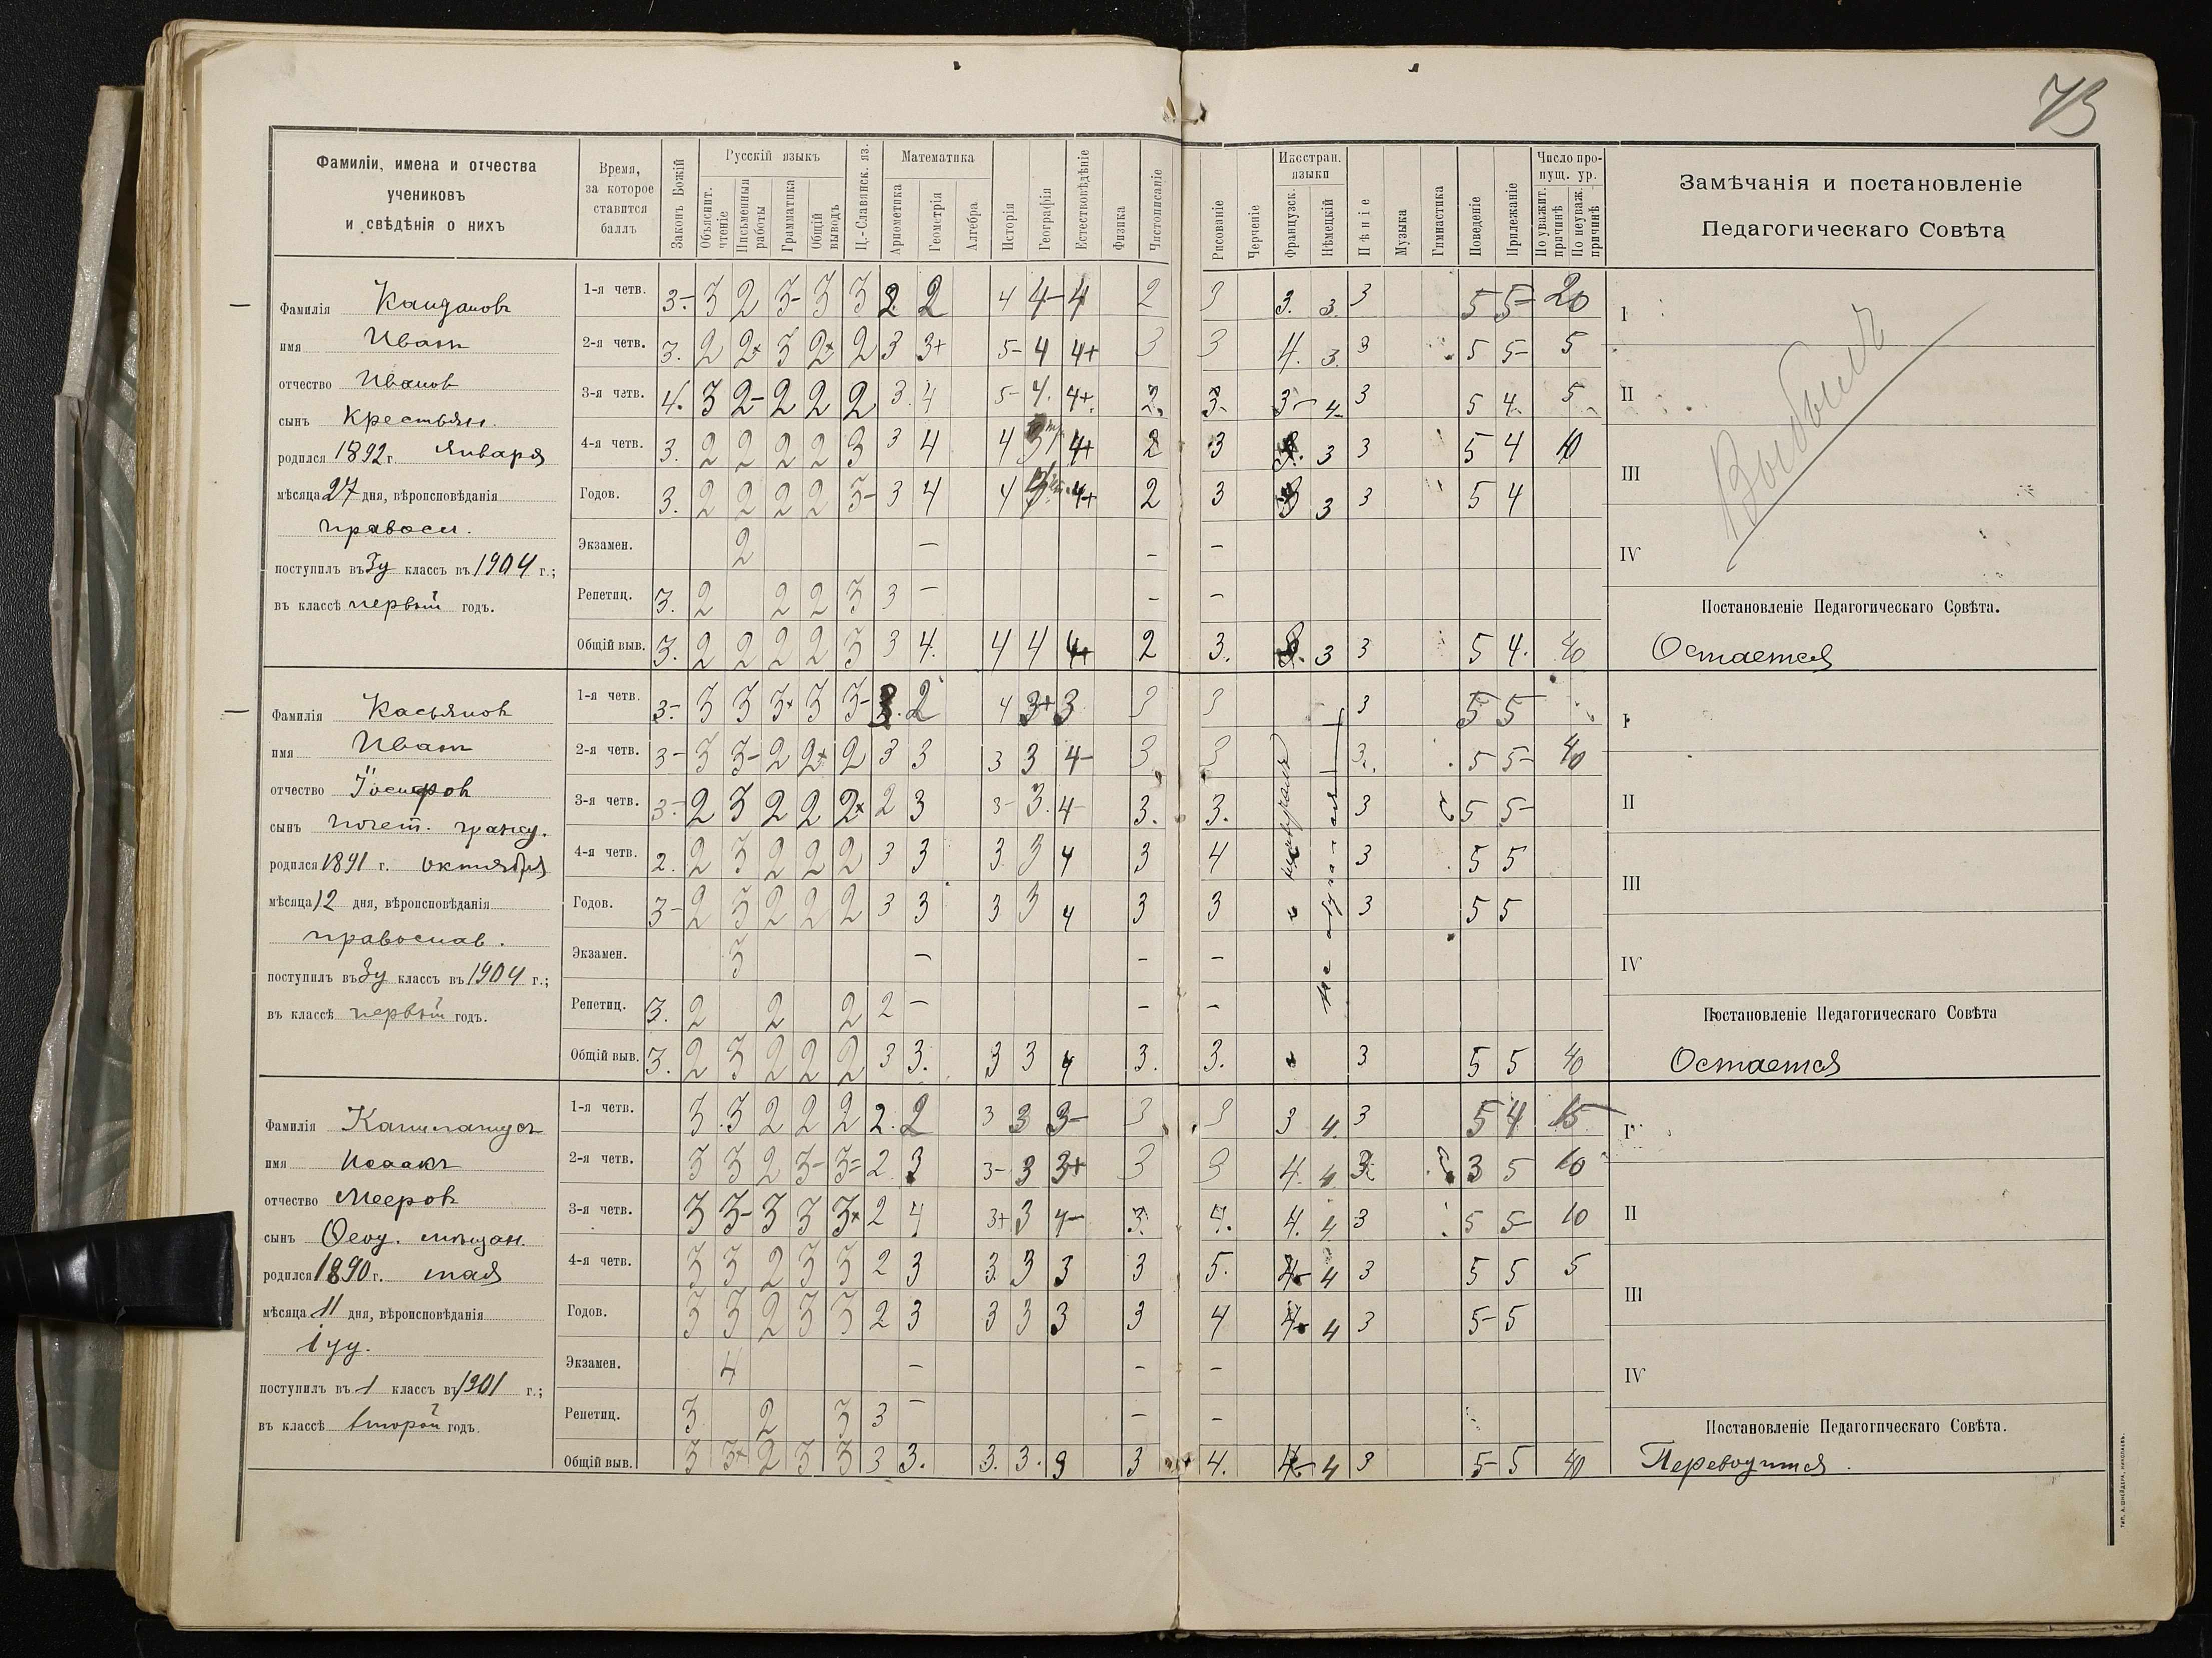 73
Фамиліи, имена и отчества
учениковъ
и свѣдѣнія о нихъ
Время,
за которое
ставится
баллъ
Законъ Божій
Русскій языкъ
Объяснит. чтеніе
Письменныя работы
Грамматика
Общій выводъ
Ц.-Славянск. яз.
Математика
Ариѳметика
Геометрія
Алгебра
Исторія
Географія
Естествовѣдѣніе
Физика
Чистописаніе
Рисованіе
Черченіе
Иностран. языки
Французск.
Нѣмецкій
Пѣніе
Музыка
Гимнастика
Поведеніе
Прилежаніе
Число пропущ. ур.
По уважит. причинѣ
По неуваж. причинѣ
Замѣчанія и постановленіе
Педагогическаго Совѣта
Фамилія
имя Иванъ
отчество Ивановъ
сынъ Крестьян.
родился 1892 г. Января
мѣсяца 27 дня, вѣроисповѣданія
правосл.
поступилъ въ 3й классъ въ 1904 г.;
въ классѣ первый годъ.
1-я четв. 3- 3 2 3- 3 3 2 2 4 4- 4 2 3 3. 3. 3 5 5- 20
2-я четв. 3. 2 2+ 3 2+ 2 3 3+ 5- 4 4+ 3 3 4. 3. 3 5 5- 5
3-я четв. 4. 3 2- 2 2 2 3. 4 5- 4. 4+. 3- 3- 4- 3 5 4. 5
4-я четв. 3. 2 2 2 2 3 3 4 4 4+ 2 3 3 3 5 4 10
Годов. 3. 2 2 2 2 3- 3 4 4 4+ 2 3 3 3 3 5 4
Экзамен. 2 — - -
Репетиц. 3. 2 2 2 3 3 — - -
Общій выв. 3. 2 2 2 2 3 3 4. 4 4 4+ 2 3. 3 3 5 4. 40
I
II
III
IV
Выбылъ
Постановленіе Педагогическаго Совѣта.
Остается
Фамилія Касьяновъ
имя Иванъ
отчество Іосифовъ
сынъ почет. гражд.
родился 1891 г. октября
мѣсяца 12 дня, вѣроисповѣданія
православ.
поступилъ въ 3й классъ въ 1904 г.;
въ классѣ первый годъ.
1-я четв. 3- 3 3 3+ 3 3- 2 4 3+ 3 3 3 3 5 5
2-я четв. 3- 3 3- 2 2+ 2 3 3 3 3 4- 3 3 3 5 5- 40
3-я четв. 3- 2 3 2 2 2+ 2 3 3- 3. 4- 3. 3. 3 5 5-
4-я четв. 2. 2 3 2 2 2 3 3 3 3 4 3 4 3 5 5
Годов. 3- 2 3 2 2 2 3 3 3 3 4 3 3 3 5 5
Экзамен. 3 — - -
Репетиц. 3. 2 2 2 2 — - -
Общій выв. 3. 2 3 2 2 2 3 3. 3 3 4 3. 3. 3 5 5 40
I
II
III
IV
Постановленіе Педагогическаго Совѣта
Остается
Фамилія
имя Исаакъ
отчество Мееровъ
сынъ Ѳеод. мѣщан.
родился 1890 г. мая
мѣсяца 11 дня, вѣроисповѣданія
іуд.
поступилъ въ 1 классъ въ 1901 г.;
въ классѣ второй годъ.
1-я четв. 3 3 2 2 2 2. 2 3 3 3- 3 3 3 4. 3 5 4 15
2-я четв. 3 3 2 3- 3= 2 3 3- 3 3+ 3 3 4. 4. 3 3 5 10
3-я четв. 3 3- 3 3 3+ 2 4 3+ 3 4- 3. 4. 4. 4 3 5 5- 10
4-я четв. 3 3 2 3 3 2 3 3. 3 3 3 5. 4- 4 3 5 5 5
Годов. 3 3 2 3 3 2 3 3 3 3 3 4 4 4 3 5- 5
Экзамен. 4 — - -
Репетиц. 3 2 3 3 — - -
Общій выв. 3 3+ 2 3 3 3 3. 3. 3. 3 3 4. 4 3 5- 5 40
I
II
III
IV
Постановленіе Педагогическаго Совѣта.
Переводится.
ТИП. А. ШНЕЙДЕРА, НИКОЛАЕВЪ.